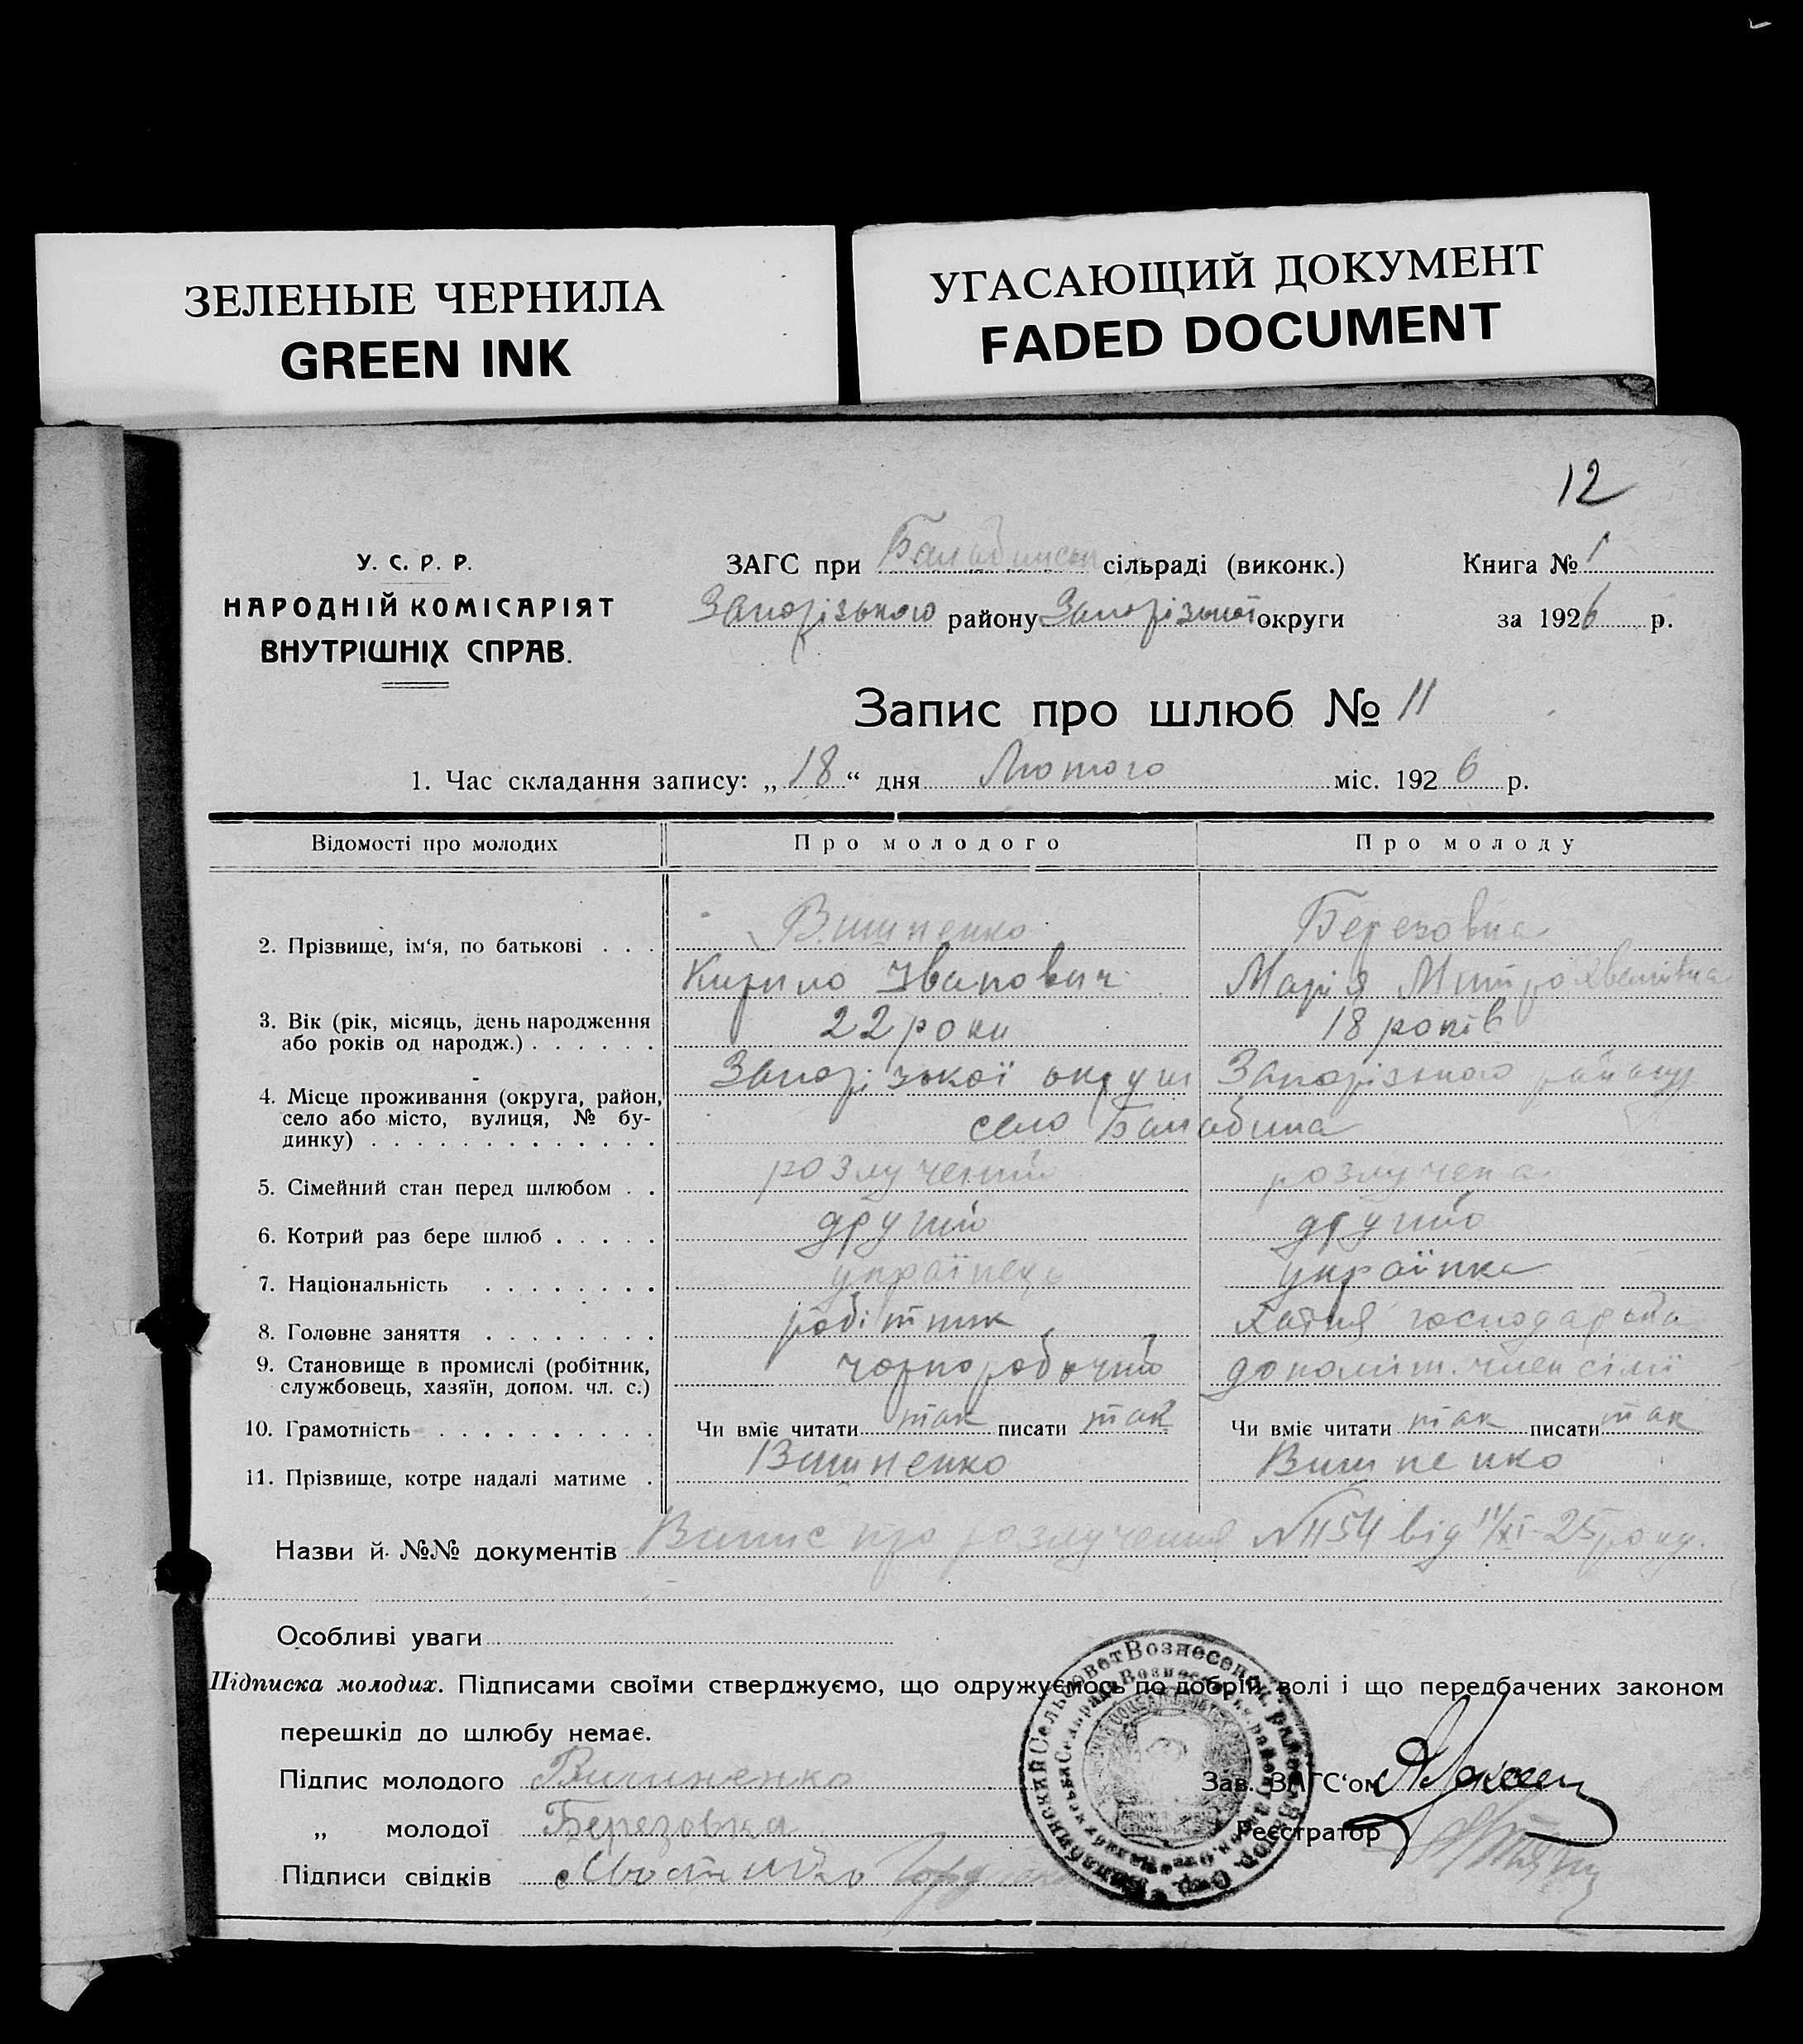 ЗЕЛЕНЫЕ ЧЕРНИЛА
GREEN INK
УГАСАЮЩИЙ ДОКУМЕНТ
FADED DOCUMENT
12
У. С. Р. Р.
НАРОДНІЙ КОМІСАРІЯТ
ВНУТРІШНІХ СПРАВ.
ЗАГС при Балабинськ сільраді (виконк.)
Запорізького району Запорізької округи
Книга № 1
за 1926 р.
Запис про шлюб № 11
1. Час складання запису: „18“ дня Лютого міс. 1926 р.
Відомості про молодих Про молодого Про молоду
2. Прізвище, ім'я, по батькові . . . Вишненко Березовна
Кирило Іванович Марія
3. Вік (рік, місяць, день народження 22 роки 18 років
або років од народж.) . . . . . .
Запорізької округи Запорізького району
4. Місце проживання (округа, район,
село або місто, вулиця, № бу- село Балабина
динку) . . . . . . . . . . . . .
5. Сімейний стан перед шлюбом . . розлучений розлучена
6. Котрий раз бере шлюб . . . . . другий другий
7. Національність . . . . . . . . українець українка
8. Головне заняття . . . . . . . . робітник хатня господарка
9. Становище в промислі (робітник, чорноробочий допоміж. член сімї
службовець, хазяїн, допом. чл. с.)
10. Грамотність . . . . . . . . . . Чи вміє читати так писати так Чи вміє читати так писати так
11. Прізвище, котре надалі матиме . Вишненко Вишненко
Назви й №№ документів Витис про розлучення N 1154 від 11/XI-25 року.
Особливі уваги
Підписка молодих. Підписами своїми стверджуємо, що одружуємось по добрій волі і що передбачених законом
перешкід до шлюбу немає.
Підпис молодого Вишненко
„ молодої Березовна
Підписи свідків
Зав. ЗАГС'ом
Реєстратор